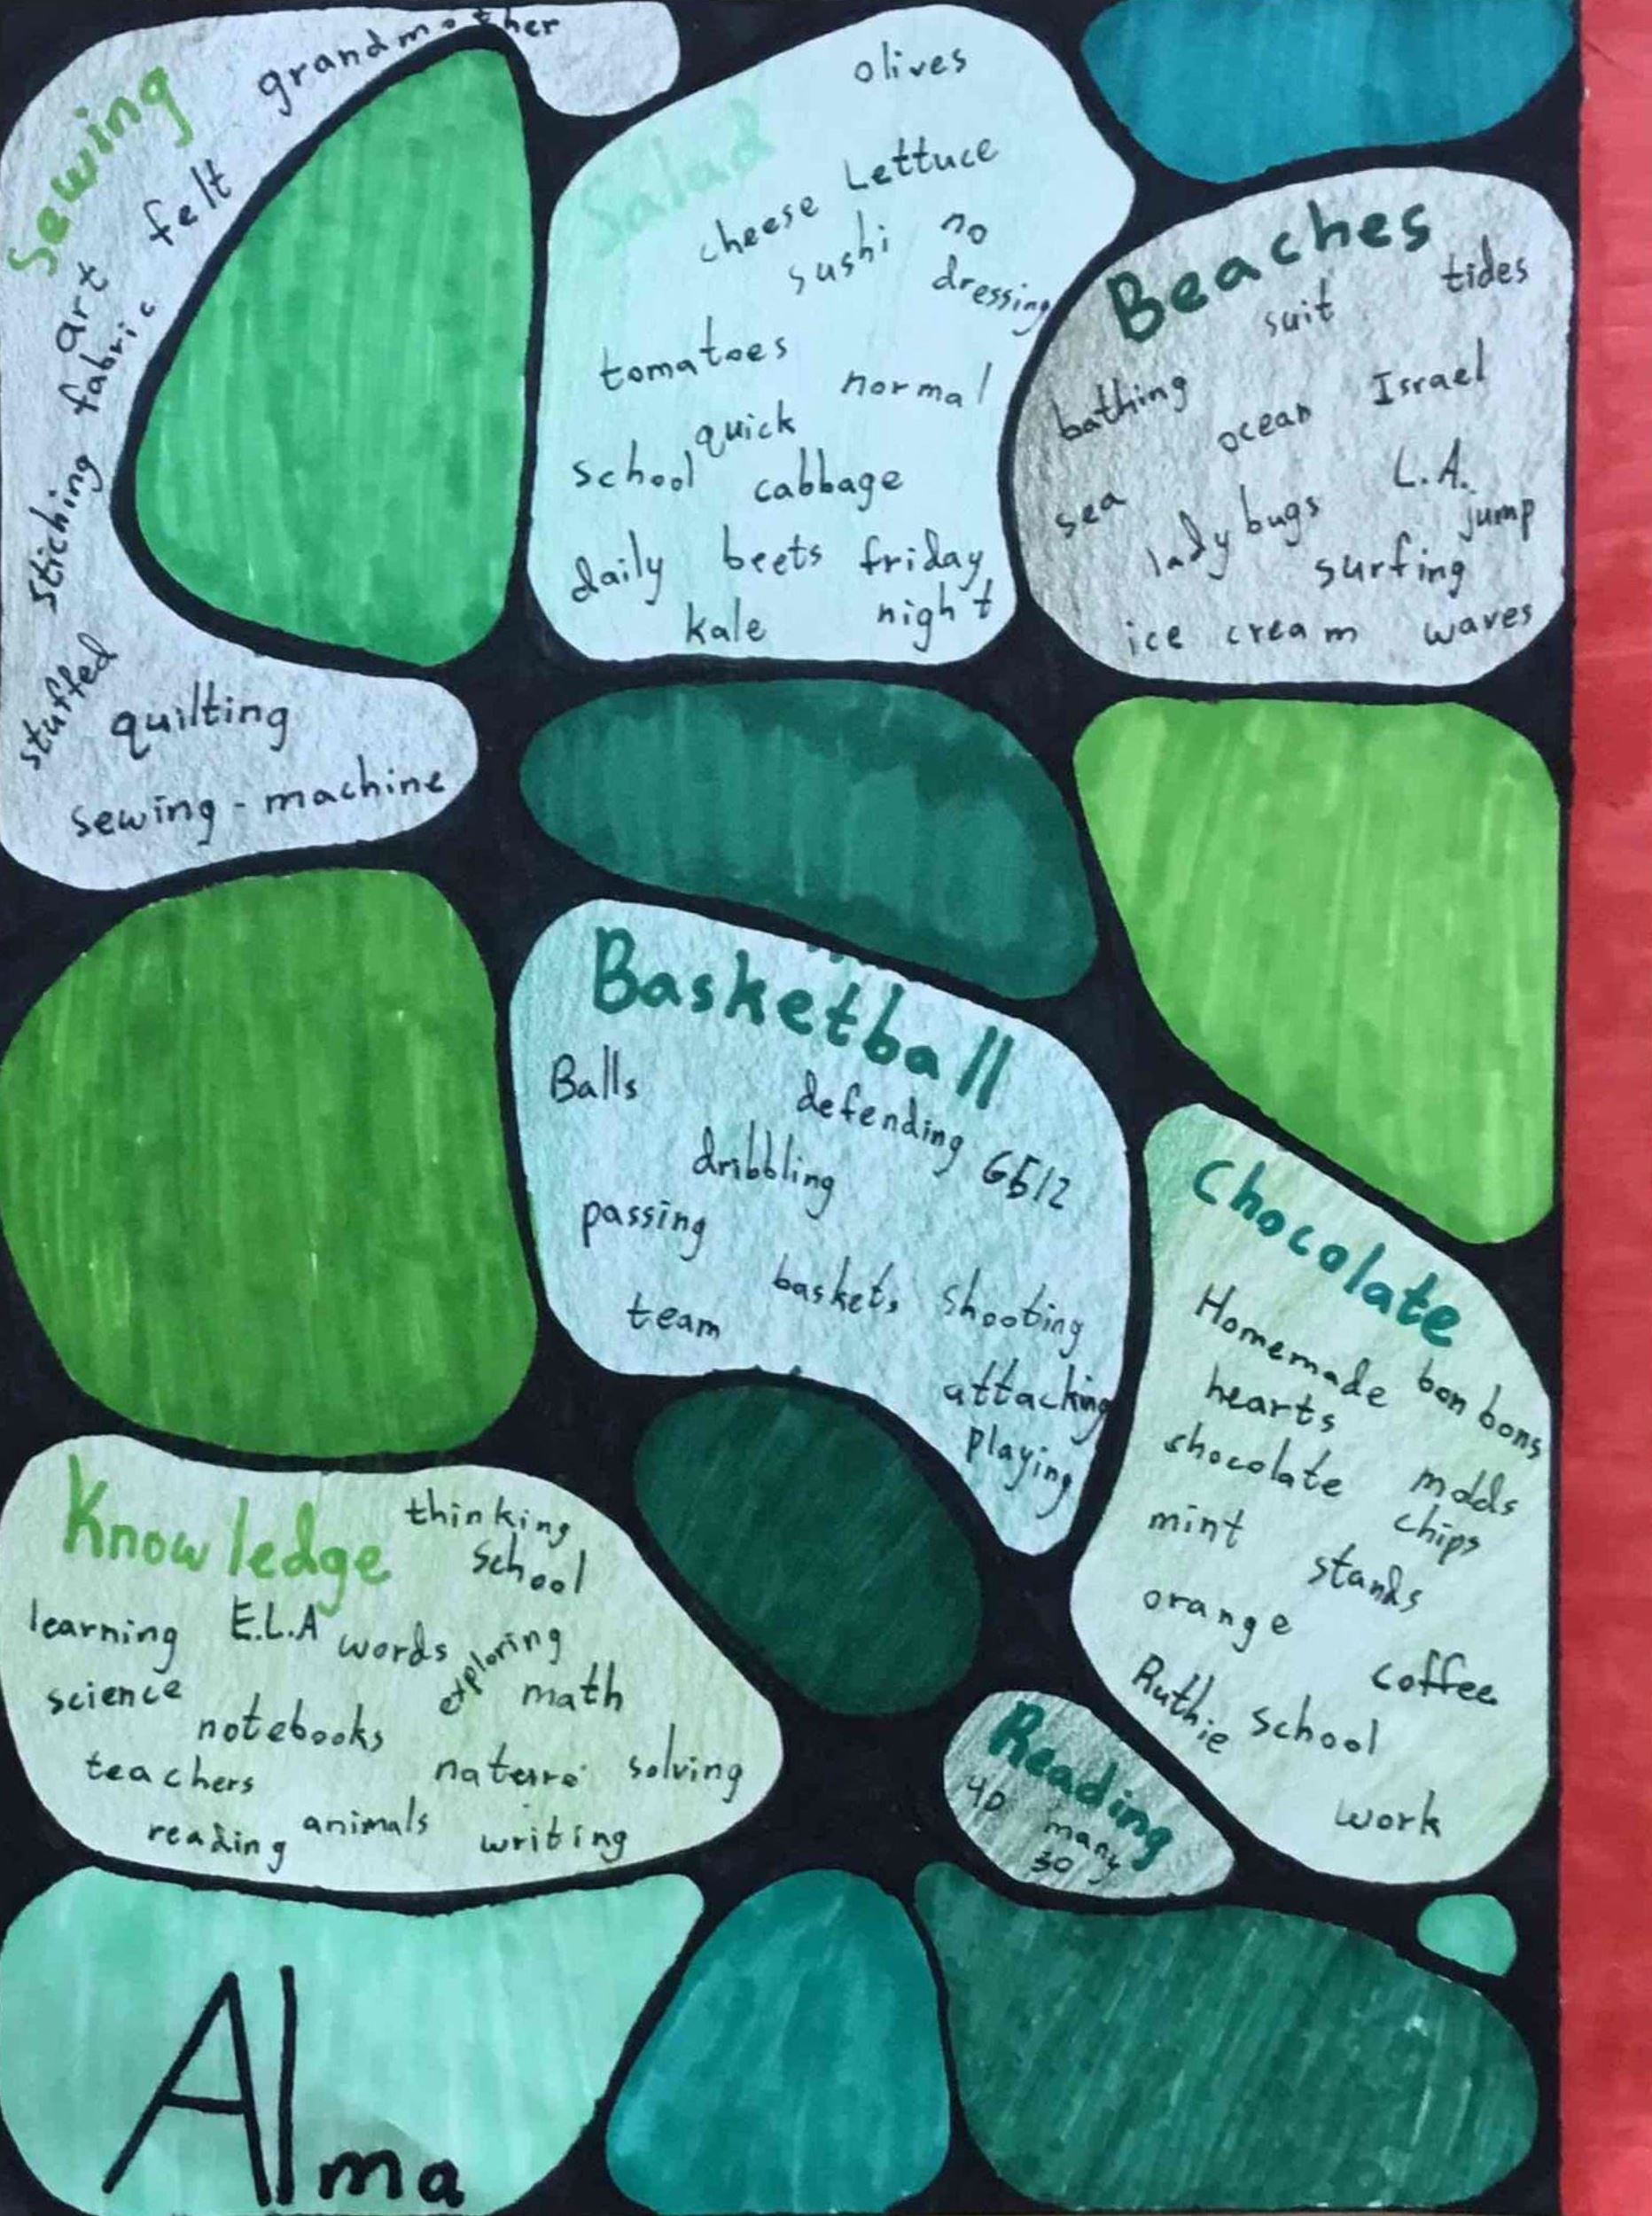 Sewing
grandmother
felt
art
fabric
stiching
stuffed
quilting
sewing - machine
Salad
olives
Lettuce
cheese
sushi
no
dressing
tomatoes
normal
quick
school
cabbage
daily
beets
friday
night
kale
Beaches
tides
suit
bathing
Israel
ocean
L.A.
sea
lady bugs
jump
surfing
ice cream
waves
Basketball
Balls
defending
dribbling
passing
baskets
shooting
team
attacking
playing
Chocolate
Homemade
bon bons
hearts
molds
chips
mint
stands
orange
coffee
Ruthie
school
work
Knowledge
thinking
school
learning
E.L.A
words
exploring
science
math
notebooks
teachers
solving
reading
animals
writing
Reading
many
30
Alma